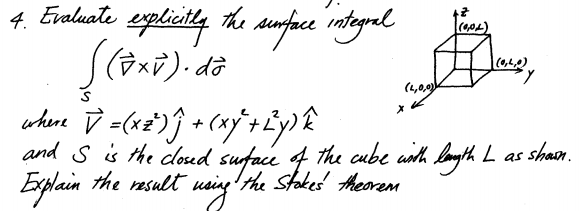 4. Evaluate explicitly the surface integral
∫_S (∇⃗×V⃗)·dσ⃗
z
(0,0,L)
(0,L,0)
y
(L,0,0)
x
where V⃗ = (xz²) ĵ + (xy² + L²y) k̂
and S is the closed surface of the cube with length L as shown.
Explain the result using the Stokes' theorem